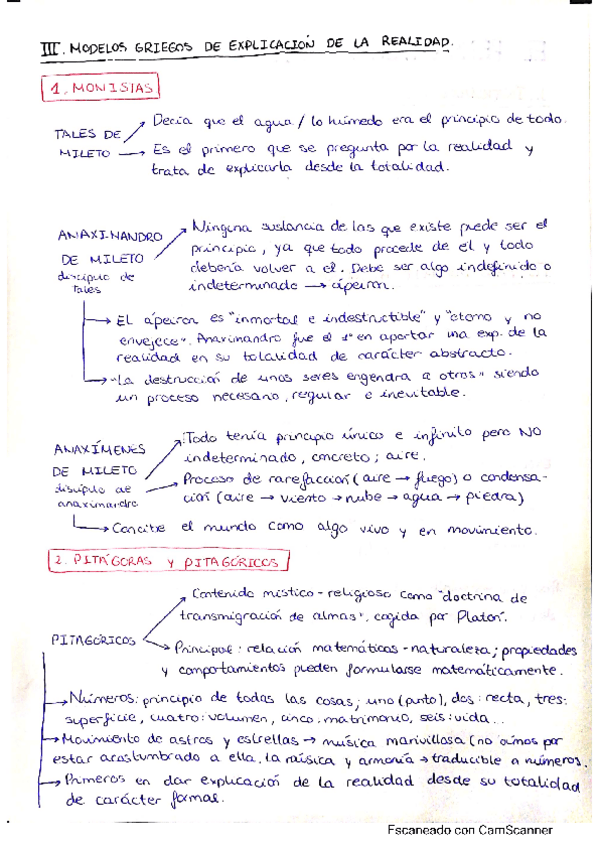 III. MODELOS GRIEGOS DE EXPLICACIÓN DE LA REALIDAD.
1. MONISTAS
TALES DE
MILETO
Decía que el agua / lo húmedo era el principio de todo.
→ Es el primero que se pregunta por la realidad y
trata de explicarla desde la totalidad.
ANAXIMANDRO
DE MILETO
discípulo de
Tales
Ninguna sustancia de las que existe puede ser el
principio, ya que todo procede de el y todo
debería volver a el. Debe ser algo indefinido o
indeterminado → ápeiron.
→ EL ápeiron es "inmortal e indestructible" y "eterno y no
envejece". Anaximandro fue el 1º en aportar una exp. de la
realidad en su totalidad de carácter abstracto.
→ "La destrucción de unos seres engendra a otros" siendo
un proceso necesario, regular e inevitable.
ANAXÍMENES
DE MILETO
discípulo de
anaximandro
Todo tenía principio único e infinito pero NO
indeterminado, concreto; aire.
Proceso de rarefacción (aire → fuego) o condensa-
ción (aire → viento → nube → agua → piedra)
→ Concibe el mundo como algo vivo y en movimiento.
2. PITÁGORAS Y PITAGÓRICOS
PITAGÓRICOS
Contenido místico-religioso como "doctrina de
transmigración de almas", cogida por Platón.
Principal: relación matemáticas-naturaleza; propiedades
y comportamientos pueden formularse matemáticamente.
→ Números: principio de todas las cosas; uno (punto), dos: recta, tres:
superficie, cuatro: volumen, cinco: matrimonio, seis: vida...
→ Movimiento de astros y estrellas → música marivillosa (no oímos por
estar acostumbrado a ella, la música y armonía → traducible a números.
→ Primeros en dar explicación de la realidad desde su totalidad
de carácter formas.
Escaneado con CamScanner